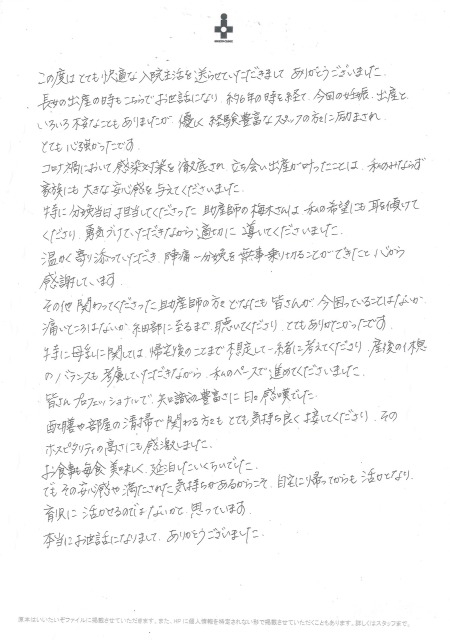 この度は とても快適な入院生活を送らせていただきまして ありがとうございました.
長女の出産の時もこちらでお世話になり 約6年の時を経て、今回の妊娠、出産と、
いろいろ不安なこともありましたが 優しく 経験豊富なスタッフの方々に励まされ
とても心強かったです.
コロナ禍において感染対策を徹底され 立ち会い出産が叶ったことは、私のみならず
家族にも大きな安心感を与えてくださいました.
特に分娩当日担当してくださった助産師の梅木さんは 私の希望にも耳を傾けて
くださり、勇気づけていただきながら適切に 導いてくださいました.
温かく寄り添っていただき 陣痛〜分娩を無事乗り切ることができたと心から
感謝しています.
その他関わってくださった助産師の方々どなたも皆さんが、今困っていることはないか、
痛いところはないか、細部に至るまで聴いてくださり、とてもありがたかったです.
特に母乳に関しては 帰宅後のことまで想定して一緒に考えてくださり、産後の休息
のバランスも考慮していただきながら 私のペースで進めてくださいました.
皆さんプロフェッショナルで、知識の豊富さに日々感嘆でした.
配膳や部屋の清掃で関わる方々も とても気持ち良く接してくださり、その
ホスピタリティの高さにも感激しました.
お食事も毎食美味しく、延泊したいくらいでした.
でも その安心感や満たされた気持ちがあるからこそ、自宅に帰ってからも活力となり、
育児に 活かせるのではないかと 思っています.
本当にお世話になりまして、ありがとうございました.
原本はいいたいぞファイルに掲載させていただきます。また、HPに個人情報を特定されない形で掲載させていただくこともあります。詳しくはスタッフまで。